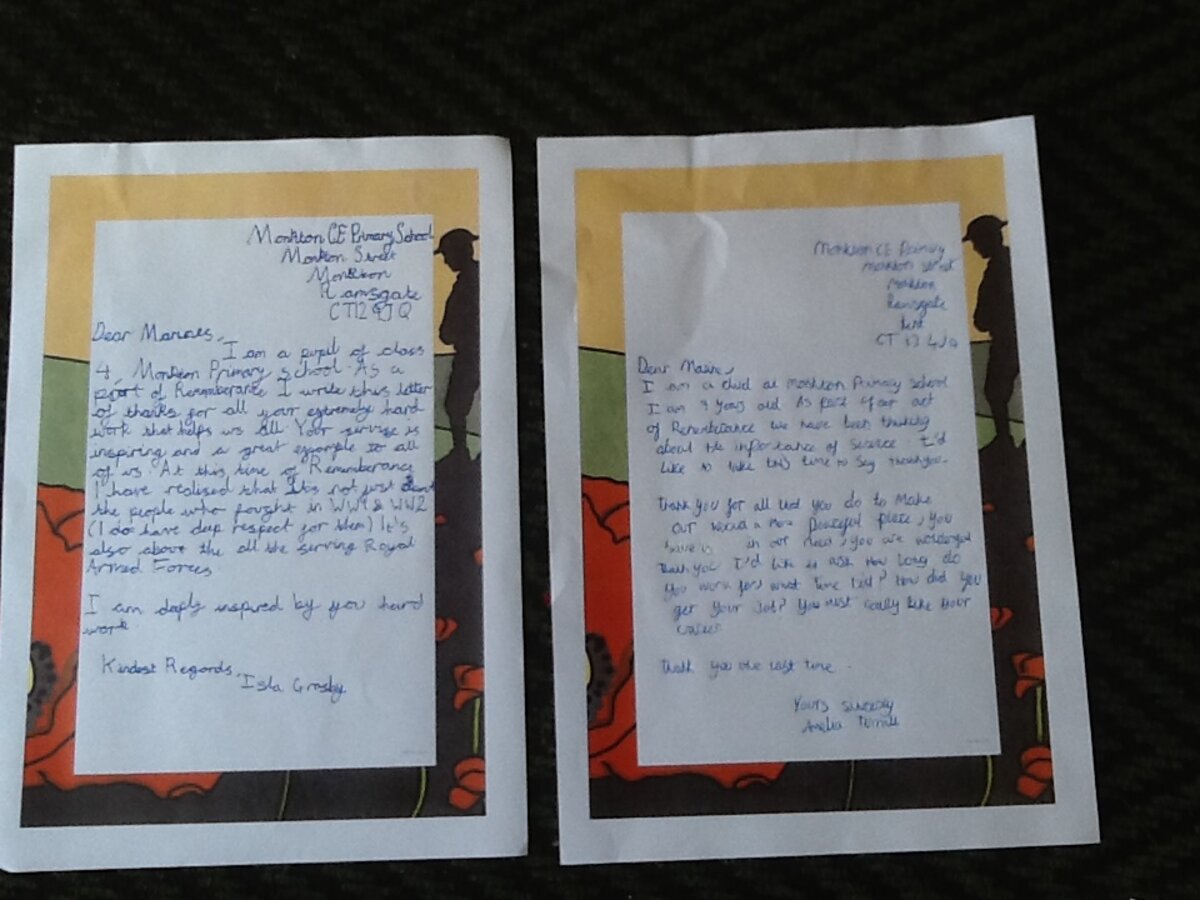 Monkton CE Primary School
Monkton Street
Monkton
Ramsgate
CT12 4JQ
Dear Marines,
I am a pupil of class
4, Monkton Primary school. As a
part of Rememberance I write this letter
of thanks for all your extremely hard
work that helps us all. Your service is
inspiring and a great example to all
of us. At this time of Rememberance
I have realised that It's not just
the people who fought in WW1 & WW2
(I do have deep respect for them) It's
also about the all the serving Royal
Armed Forces
I am deeply inspired by you hard
work
Kindest Regards,
Isla
Monkton CE Primary
Monkton Street
Monkton
Ramsgate
Kent
CT
Dear Marine,
I am a child at Monkton Primary School
I am 9 years old. As part of our act
of Rememberance we have been thinking
about the importance of service. I'd
like to take this time to say thankyou.
Thank you for all that you do to make
our world a more peaceful place, you
in our need, you are wonderful
thank you I'd like to ask how long do
you work for, what time list? How did you
get your job? You must really like your
Thank you one last time.
Yours sincerely
Amelia